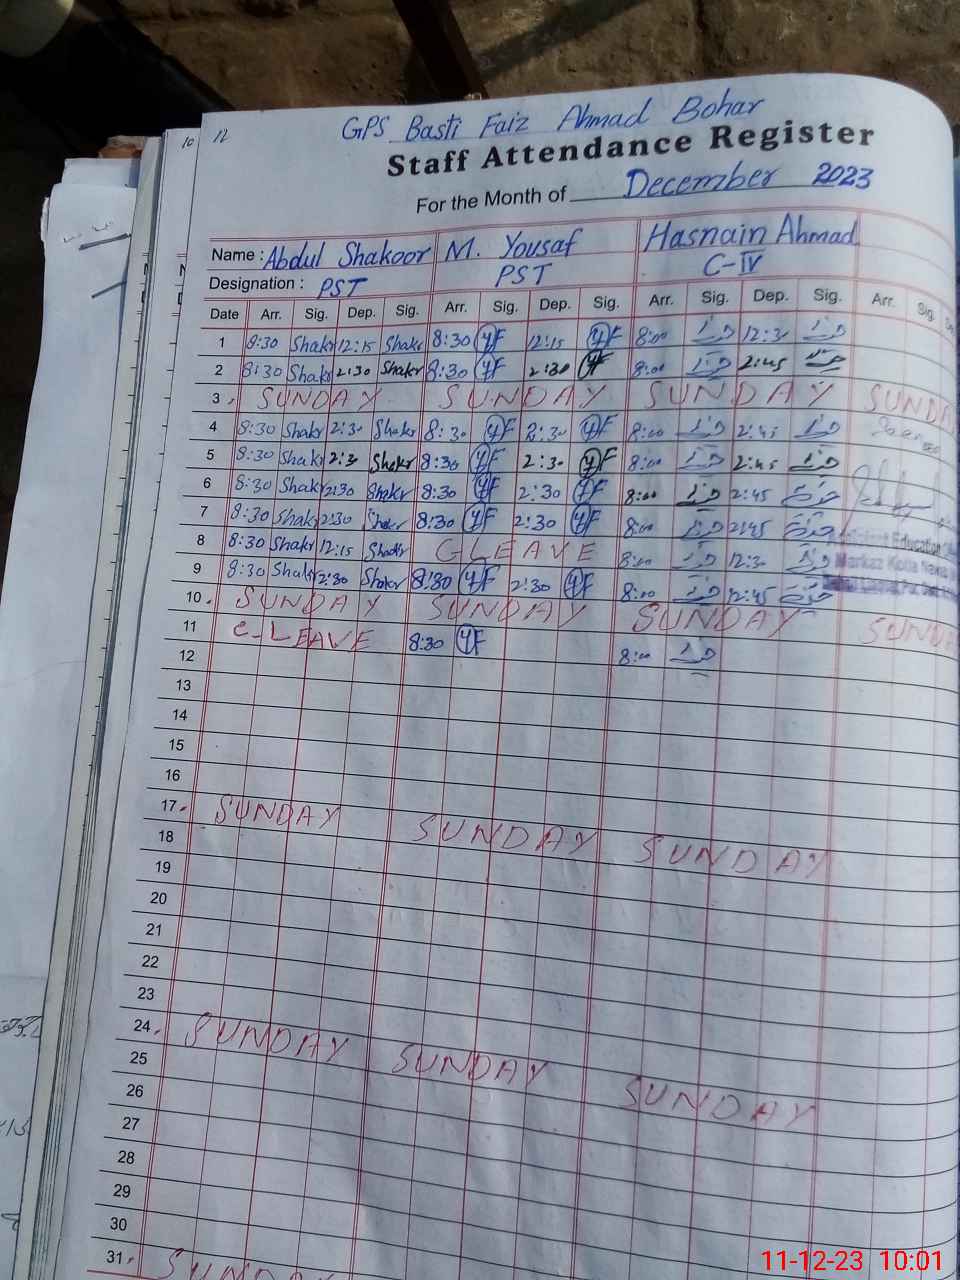 10 12 GPS Basti Faiz Ahmad Bohar
Staff Attendance Register
For the Month of December 2023
Name : Abdul Shakoor M. Yousaf Hasnain Ahmad
Designation : PST PST C-IV
Date Arr. Sig. Dep. Sig. Arr. Sig. Dep. Sig. Arr. Sig. Dep. Sig. Arr. Sig.
1 8:30 Shakr 12:15 Shakr 8:30 YF 12:15 YF 8:00 12:30
2 8:30 Shakr 2:30 Shakr 8:30 YF 2:30 YF 8:00 2:45
3. SUNDAY SUNDAY SUNDAY SUNDA
4 8:30 Shakr 2:30 Shakr 8:30 YF 2:30 YF 8:00 2:45
5 8:30 Shakr 2:30 Shakr 8:30 YF 2:30 YF 8:00 2:45
6 8:30 Shakr 2:30 Shakr 8:30 YF 2:30 YF 8:00 2:45
7 8:30 Shakr 2:30 Shakr 8:30 YF 2:30 YF 8:00 2:45
8 8:30 Shakr 12:15 Shakr C LEAVE 8:00 12:30 Education
9 8:30 Shakr 2:30 Shakr 8:30 YF 2:30 YF 8:00 12:45 Markaz Kotla
10. SUNDAY SUNDAY SUNDAY SUNDA
11 C-LEAVE 8:30 YF 8:00
12
13
14
15
16
17. SUNDAY SUNDAY SUNDAY
18
19
20
21
22
23
24. SUNDAY SUNDAY SUNDAY
25
26
27
28
29
30
31. SUNDAY
11-12-23 10:01